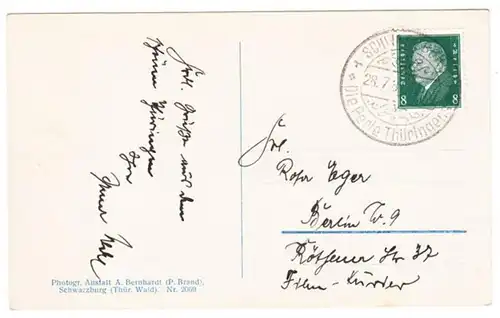 Frl. Grüße aus dem
schönen Thüringen
Ihr
Frl.
Rosa Eger
Berlin W. 9
Köthener Str. 37
Film-Kurier
SCHW
28.7
Die Perle Thüringens
DEUTSCHES REICH
8 8
Photogr. Anstalt A. Bernhardt (P. Brand),
Schwarzburg (Thür. Wald). Nr. 2069